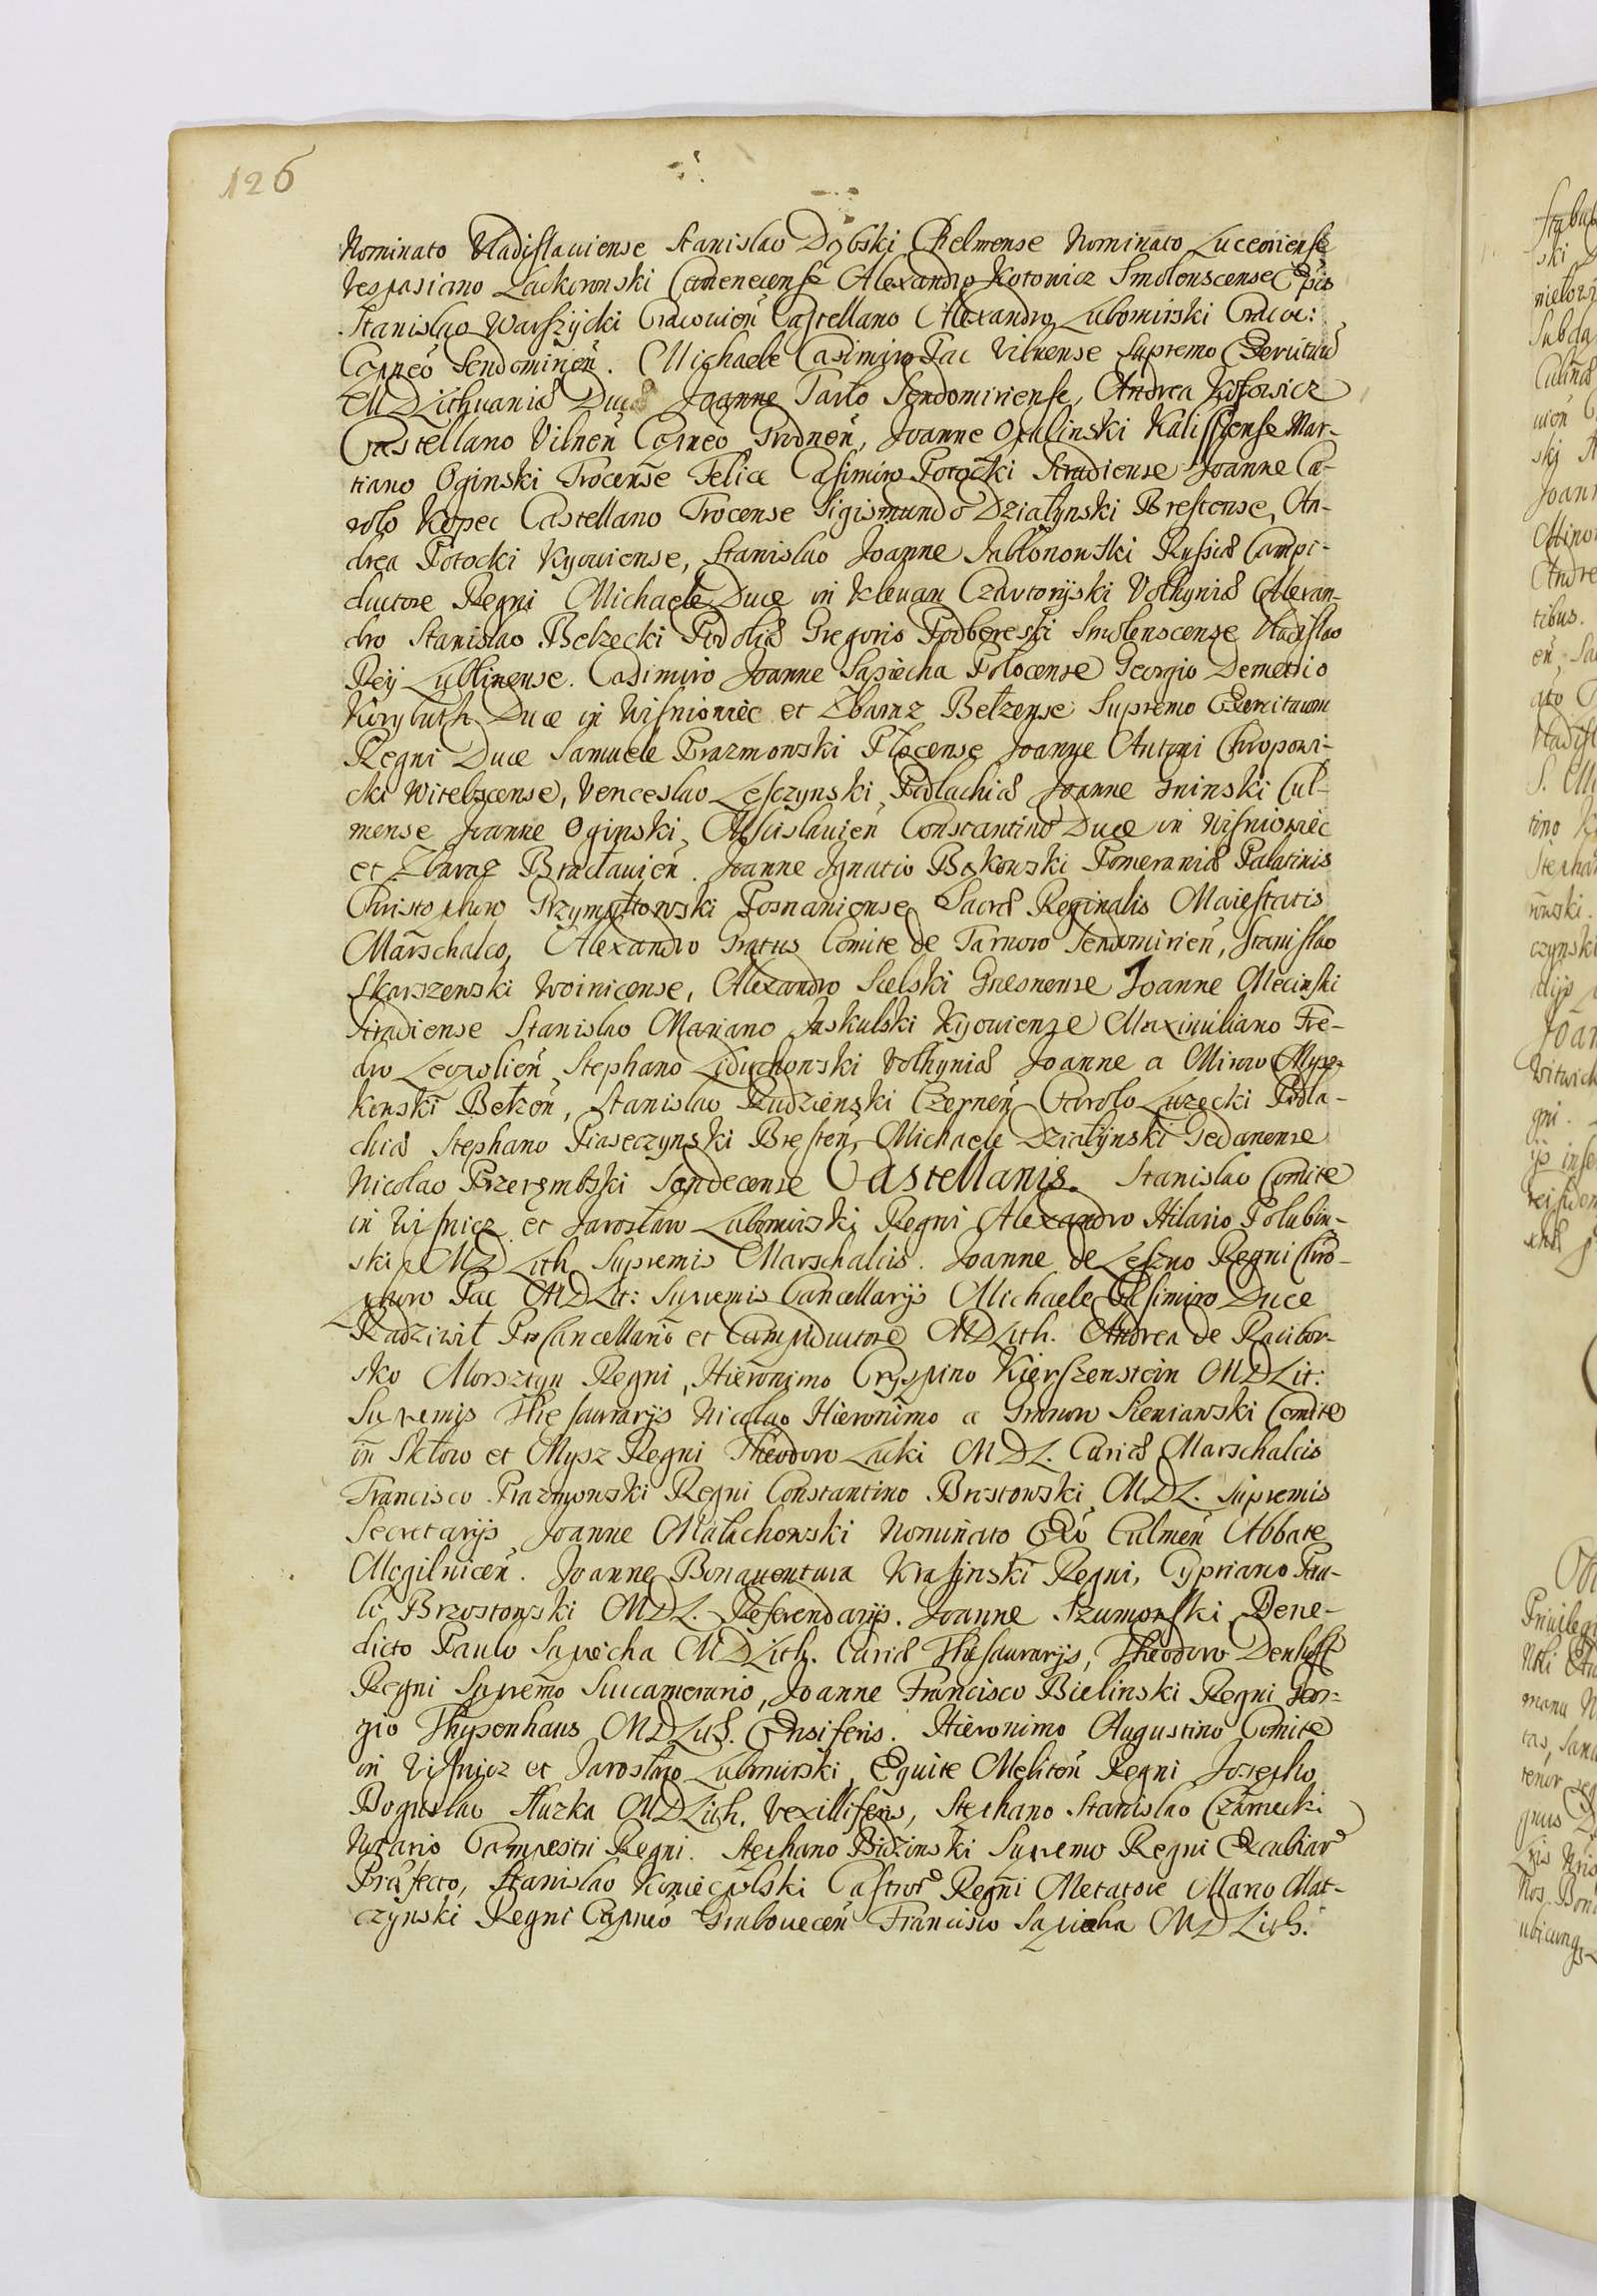 126
Nominato Vladislauiense Stanislao Dąbski Chelmense Nominato Luceoriense
Vespasiano Lackoronski Camenecense Alexandro Kotowicz Smolenscense Epis
Stanislao Warszÿcki Cracouień Castellano Alexandro Lubomirski Cracou:
Capneo Sendomirień. Michaele Casimiro Pac Vilnense Supremo Exercituu
M D Lithuaniæ Duce Joanne Tarło Sendomiriense, Andrea
Castellano Vilneń Capneo Grodneń, Joanne Opalinski Kalissiense Mar-
tiano Oginski Trocense Felice Casimiro Potocki Siradiense Joanne Ca-
rolo Kopec Castellano Trocense Sigismundo Działynski Brestense, An-
drea Potocki Kyouiense, Stanislao Joanne Jabłonowski Russiæ Campi-
ductore Regni Michaele Duce in Klewan Czartorÿski Volhyniæ Alexan-
dro Stanislao Bełzecki Podoliæ Gregorio Podbereski Smolenscense Vladislao
Reÿ Lublinense. Casimiro Joanne Sapiecha Polocense Georgio Demetrio
Korybuth Duce in Wisniowiec et Zbaraz Bełzense Supremo Exercituum
Regni Duce Samuele Prazmowski Plocense Joanne Antoni Chrapowi-
cki Witebscense, Venceslao Lesczynski Podlachiæ Joanne Gninski Cul-
mense Joanne Oginski, Mscislauień Constantino Duce in Wisniowiec
et Zbaraz Bracłauień. Joanne Ignatio Bąkowski Pomeraniæ Palatinis
Christophoro Grzymułtowski Posnaniense Sacræ Reginalis Maiestatis
Marschalco, Alexandro Gratus Comite de Tarnow Sendomirień, Stanislao
Skarszewski Woinicense, Alexandro Sielski Gnesnense Joanne Mecinski
Siradiense Stanislao Mariano Jaskulski Kijouiense Maximiliano Fre-
dro Leopolień Stephano Leduchowski Volhyniæ Joanne a Mirow Mysz-
kowski Bełzeń, Stanislao Rudzienski Czerneń Carolo Luzecki Podla-
chiæ Stephano Piaseczynski Bresteń, Michaele Działÿnski Gedanense
Nicolao Przerembski Sendecense Castellanis. Stanislao Comite
in Wisnicz et Jarosław Lubomirski Regni Alexandro Hilario Polubin-
ski MD Lith Supremis Marschalcis. Joanne de Leszno Regni Chro-
phoro Pac MD Lit: Supremis Cancellarijs Michaele Casimiro Duce
Radziwił ProCancellario et Campiductore MD Lith. Andrea de Racibor-
sko Morsztyn Regni, Hieronimo Cryspino Kierszenstein MD Lit:
Supremis Thesaurarijs Nicolao Hieronimo a Granow Sieniawski Comite
in Skłow et Mysz Regni Theodoro Lacki MDL. Curiæ Marschalcis
Francisco Prazmowski Regni Constantino Brzostowski MDL. Supremis
Secretarijs Joanne Małachowski Nominato Epo Culmeń Abbate
Mogilniceń. Joanne Bonauentura Krasinski Regni, Cypriano Pau-
li Brzostowski MDL. Referendarijs. Joanne Szumowski, Bene-
dicto Paulo Sapiecha MD Lith. Curiæ Thesaurarijs, Theodoro Denhoff
Regni Supremo Succamerario, Joanne Francisco Bielinski Regni Geor-
gio Thyzenhaus MD Lith. Ensiferis. Hieronimo Augustino Comite
in Wisnicz et Jarosław Lubomirski, Equite Meliteń Regni Josepho
Boguslao Słuzka MD Lith. Vexilliferis, Stephano Stanislao Czarnecki
Notario Campestri Regni. Stephano Bidzinski Supremo Regni Excubiar
Præfecto, Stanislao Koniecpolski Castror Regni Metatore Marco Mat-
czynski Regni Capneo Graboueceń Francisco Sapieha MD Lith.